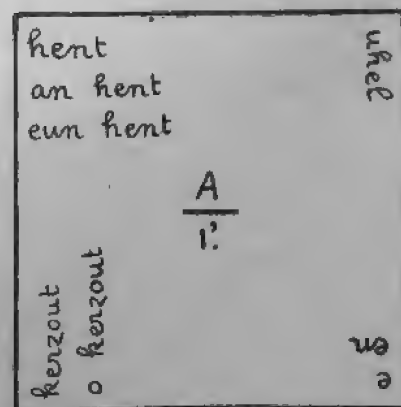 hent
an hent
eun hent
uhel
A
1.
kerzout
o kerzout
e
en